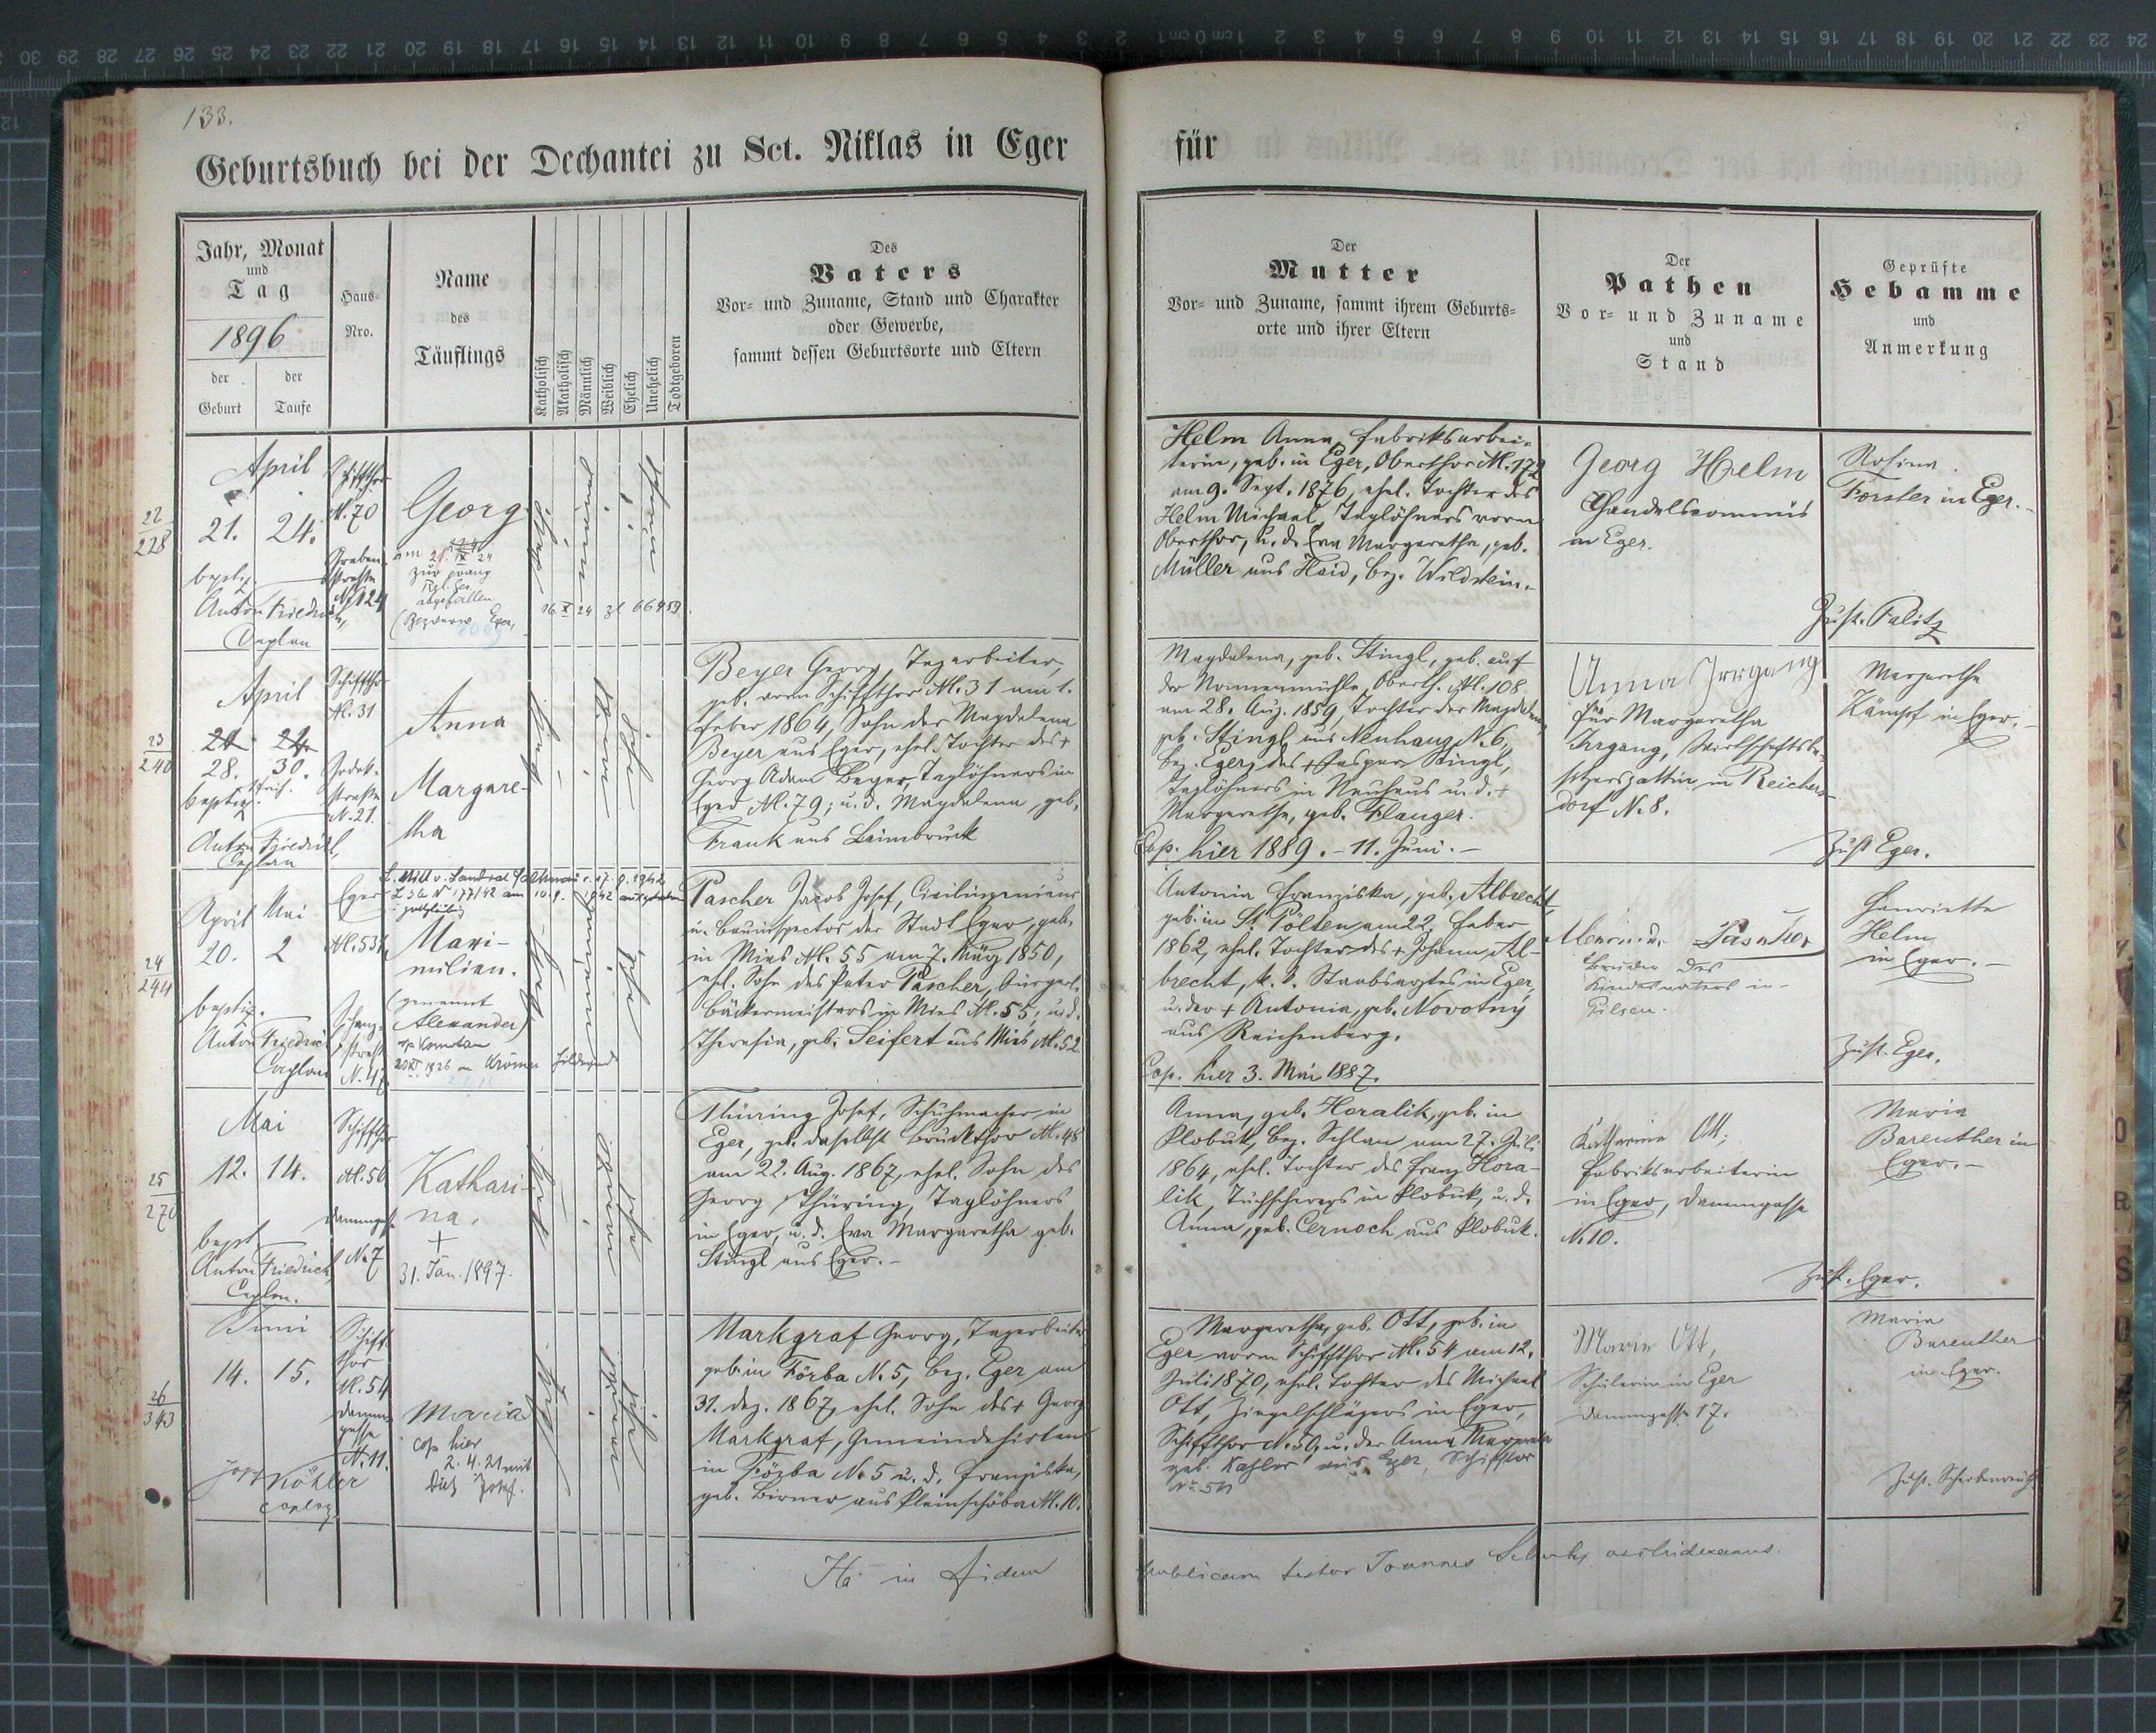 133.
Geburtsbuch bei der Dechantei zu Sct. Niklas in Eger
für
Jahr, Monat
und
Tag
1896
der
Geburt
der
Taufe
Haus-
Nro.
Name
des
Täuflings
Katholisch
Akatholisch
Männlich
Weiblich
Ehelich
Unehelich
Todtgeboren
Des
Vaters
Vor- und Zuname, Stand und Charakter
oder Gewerbe,
sammt dessen Geburtsorte und Eltern
Der
Mutter
Vor- und Zuname, sammt ihrem Geburts-
orte und ihrer Eltern
Der
Pathen
Vor- und Zuname
und
Stand
Geprüfte
Hebamme
und
Anmerkung
22
228
April
21. 24.
baptiz.
Anton Friedrich,
Caplan
Schiffthor
N. 70
Graben-
strasse
N. 124
Georg
abgefallen
16 X 24 Zl 66459
Helm Anna, Fabriksarbei-
terin, geb. in Eger, Oberthor N. 172
am 9. Sept. 1876, ehel. Tochter des
Helm Michael, Taglöhners vorm
Oberthor, u. d. Eva Margaretha, geb.
Müller aus Haid, bez. Wildstein.
Georg Helm
Handelscommis
in Eger.
Rosina
Forster in Eger.
Zust. Palitz
23
240
April
28. 30.
baptiz.
Anton Friedrich,
Caplan
Schiffthor
N. 31
N. 21.
Anna
Margare-
tha
Beyer Georg, Tagarbeiter,
geb. vorm Schiffthor N. 31 am 1.
Feber 1864, Sohn der Magdalena
Beyer aus Eger, ehel. Tochter des +
Georg Adam Beyer, Taglöhners in
Eger N. 79; u. d. Magdalena, geb.
Frank aus Laimbruck
Magdalena, geb. Stingl, geb. auf
der Nonnenmühle, Oberth. N. 108
am 28. Aug. 1859, Tochter der Magdalena,
geb. Stingl aus Neuhaus N. 6,
bez. Eger, des + Caspar Stingl,
Taglöhners in Neuhaus u. d. +
Margaretha, geb. Flauger.
Cop. hier 1889. - 11. Juni. -
Anna Irrgang
für Margaretha
Irrgang, Wirtschaftsbe-
sitzersgattin in Reichers-
dorf N. 8.
Margaretha
Kämpf in Eger.
Zust. Eger.
24
244
April Mai
20. 2
baptiz.
Anton Friedrich
Caplan
Eger
N. 531
Schanz-
strasse
N. 47
Maxi-
milian.
(genannt
Alexander)
Pascher Jacob Josef, Civilingenieur
u. Bauinspector der Stadt Eger, geb.
in Mies N. 55 am 7. März 1850,
ehel. Sohn des Peter Pascher, bürgerl.
Bäckermeisters in Mies N. 55, u. d.
Theresia, geb. Seifert aus Mies N. 52
Antonia Franziska, geb. Albrecht,
geb. in St. Pölten am 22. Feber
1862, ehel. Tochter des + Johann Al-
brecht, k. k. Stabsarztes in Eger,
u. der + Antonia, geb. Novotný
aus Reichenberg.
Cop. hier 3. Mai 1887.
Pascher
Bruder des
Kindesvaters in
Pilsen.
Henriette
Helm
in Eger. -
Zust. Eger.
25
270
Mai
12. 14.
bapt.
Anton Friedrich
Caplan.
Schiffthor
N. 50
Dammgasse
N. 7
Kathari-
na.
+
31. Jan. 1897.
Thüring Josef, Schuhmacher in
Eger, geb. daselbst Bruckthor N. 48
am 22. Aug. 1867, ehel. Sohn des
Georg Thüring, Taglöhners
in Eger, u. d. Eva Margaretha geb.
Stingl aus Eger. -
Anna, geb. Horalik, geb. in
Klobuk, bez. Schlan am 27. Juli
1864, ehel. Tochter des Franz Hora-
lik, Tuchscherers in Klobuk, u. d.
Anna, geb. Cernoch aus Klobuk.
Katharina Ott,
Fabriksarbeiterin
in Eger, Dammgasse
N. 10.
Maria
Bareuther in
Eger. -
Zust. Eger.
26
343
Juni
14. 15.
Josef Köhler
Caplan
Schiff-
thor
N. 54
Damm-
gasse
N. 11.
Maria
cop. hier
2. 4. 21 mit
Josef.
Markgraf Georg, Tagarbeiter
geb. in Förba N. 5, bez. Eger am
31. Dez. 1867, ehel. Sohn des + Georg
Markgraf, Gemeindehirten
in Förba N. 5 u. d. Franziska,
geb. Birner aus Kleinschöba N. 10.
Margaretha, geb. Ott, geb. in
Eger vorm Schiffthor N. 54 am 12.
Juli 1870, ehel. Tochter des Michael
Ott, Ziegelschlägers in Eger,
Schiffthor N. 50, u. der Anna Margaretha
geb. Kahler aus Eger, Schiffthor
N. 54
Marie Ott,
Schülerin in Eger
Dammgasse 17.
Maria
Bareuther
in Eger.
in fidem
publicam testor Joannes